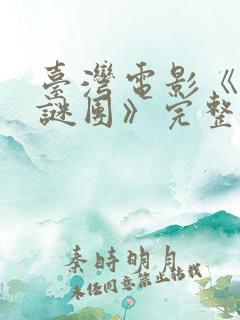 臺灣電影《
謎團》完整
秦時明月
未經同意禁止轉載